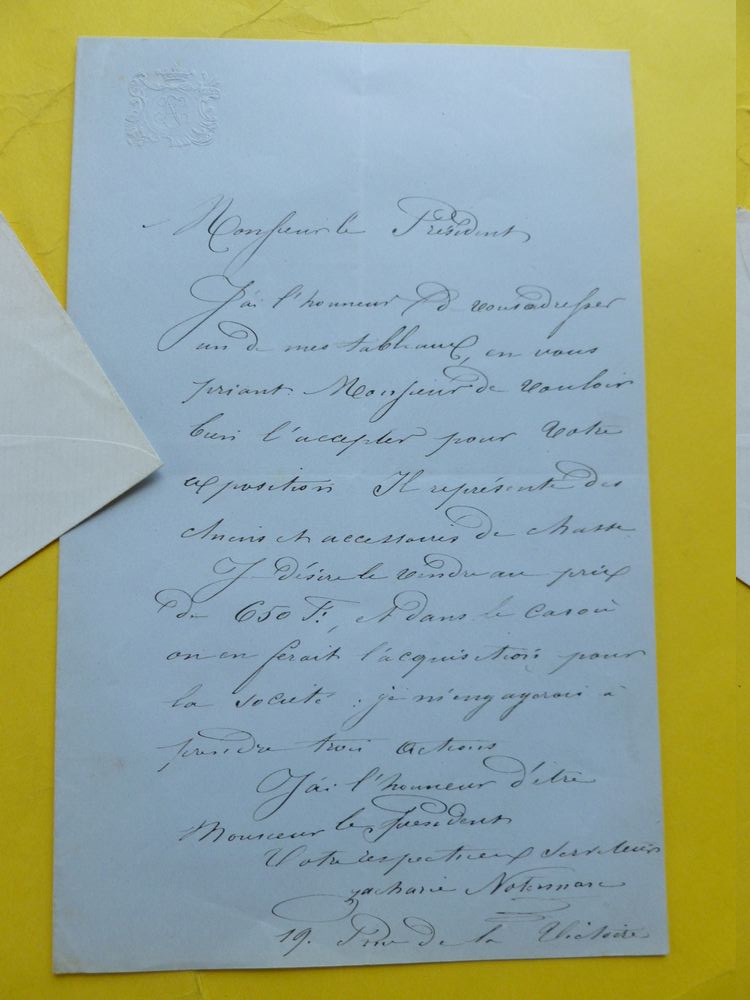 Monsieur le Président
J'ai l'honneur de vous adresser
un de mes tableaux, en vous
priant Monsieur de vouloir
bien l'accepter pour votre
exposition Il représente des
chiens et accessoires de chasse
Je désire le vendre au prix
de 650 F., et dans le cas où
on en ferait l'acquisition pour
la société ; je m'engagerais à
prendre trois actions
J'ai l'honneur d'être
Monsieur le Président
Votre respectueux serviteur
Zacharie Noterman
19. Rue de la Victoire